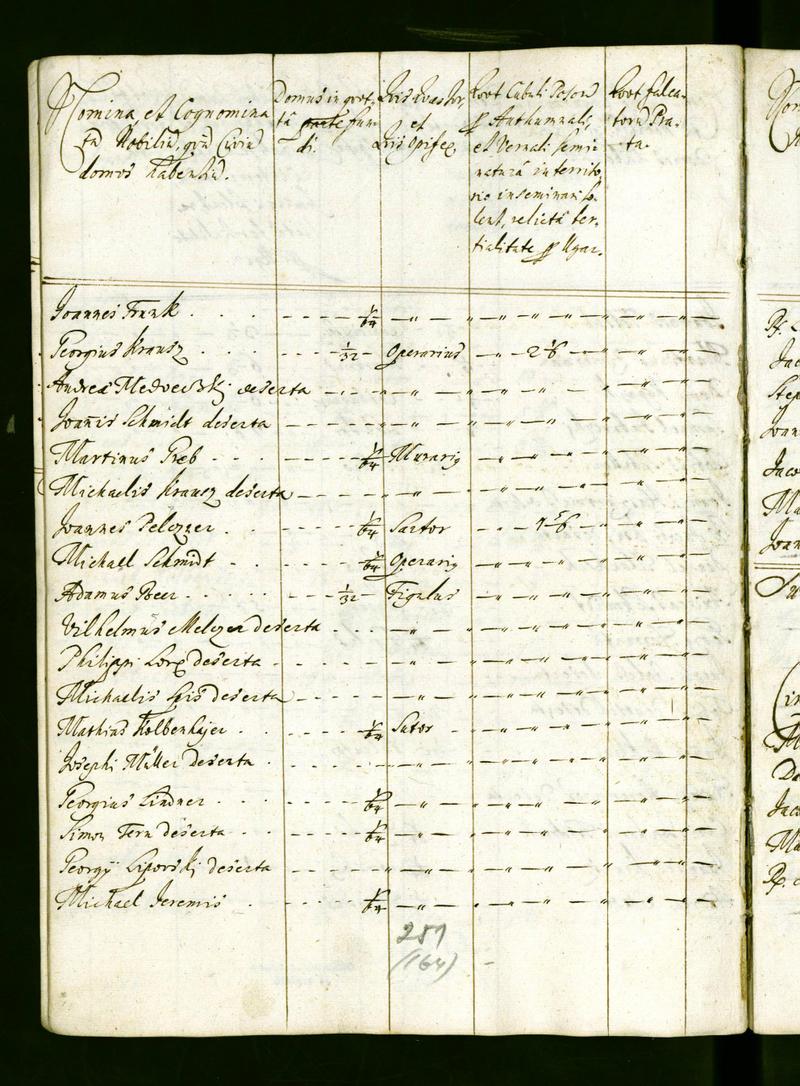 Nomina et Cognomina
tã Nobiliũ, qũ Civiũ
domos habentiũ.
Domus in quot-
tâ parte fun-
di.
et
Quis Opifex.
Quot Cubuli Poson
p Authumnali,
et Vernali semi-
naturâ in territo-
rio inseminari so-
lent, relicta ter-
tialitate p Ugar.
Quot falca-
torũ Pra-
ta.
Joannes Frank 1/64
Georgius Krausz 1/32 Operarius 2 1/6
Andreæ Medveczkj deserta
Joañis Schmidt deserta
Martinus Preb 1/64 Murarig
Michaelis Krausz deserta
Joannes Pelczner 1/64 Sartor
Michael Schmidt 1/64 Operarig
Adamus Beer 1/32 Figulus
Vilhelmus Melczer deserta
Philippi Lorx deserta
Michaelis Spis deserta
Mathias Kolbenhajer 1/64 Sutor
Josephi Müller deserta
Georgius Lindner 1/64
Simon Tern deserta 1/64
Georgÿ Lipovskj deserta
Michael Jeremis 1/64
251
(164)